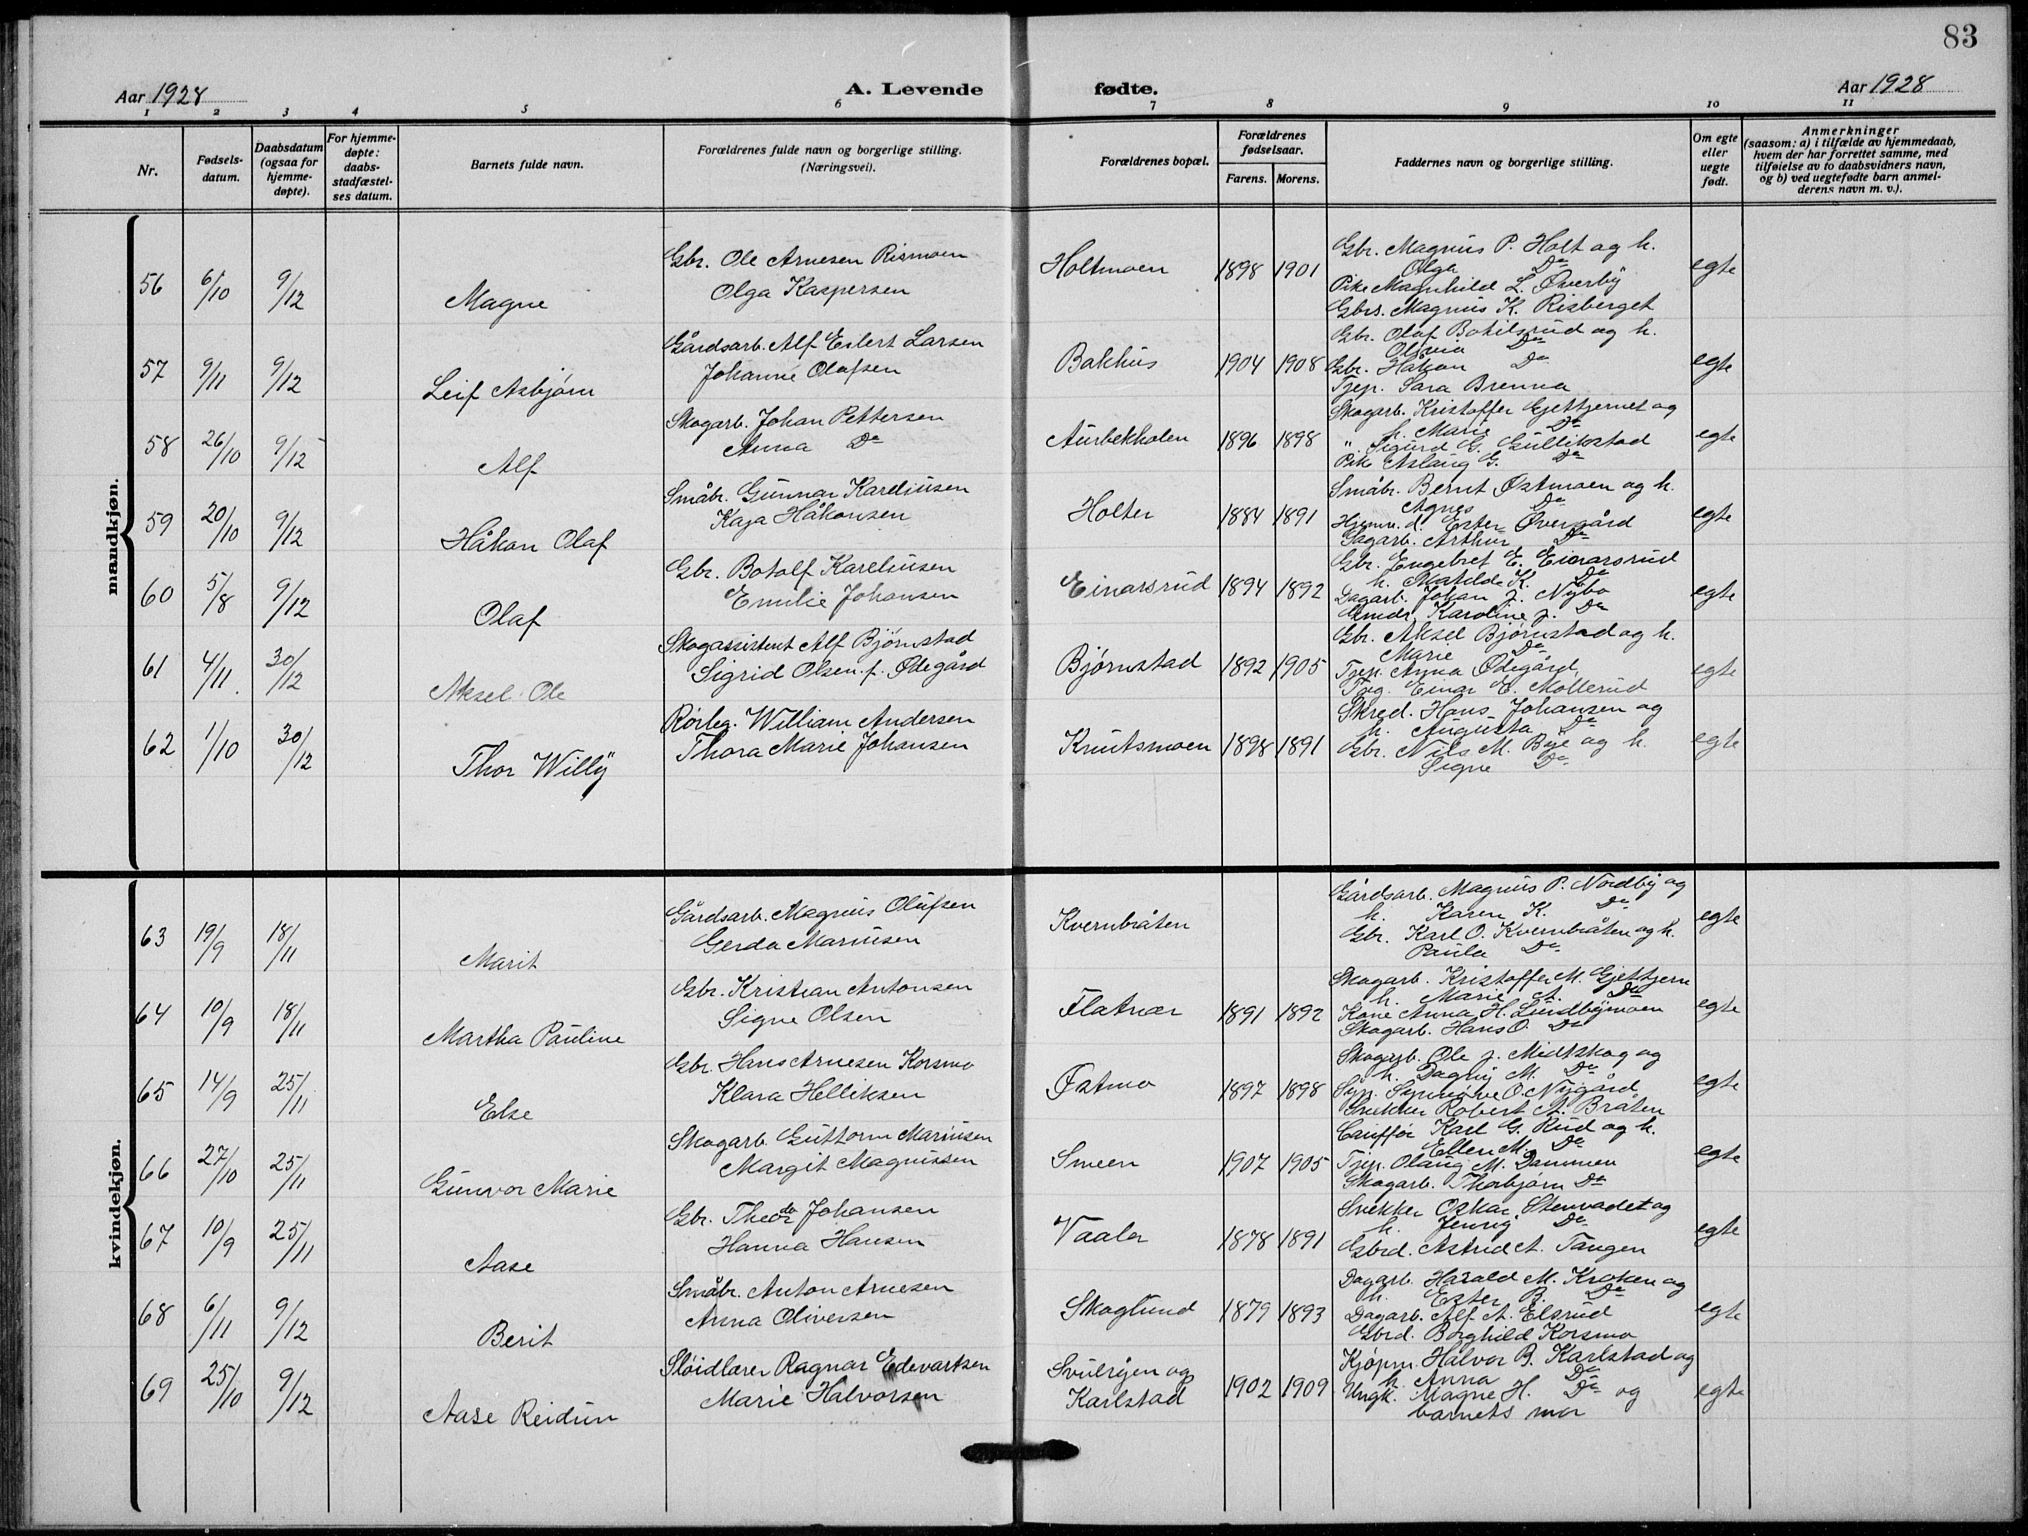 83
Aar 1928 A. Levende fødte. Aar 1928
1 2 3 4 5 6 7 8 9 10 11
Nr.
Fødsels-
datum.
Daabsdatum
(ogsaa for
hjemme-
døpte).
For hjemme-
døpte:
daabs-
stadfæstel-
ses datum.
Barnets fulde navn.
Forældrenes fulde navn og borgerlige stilling.
(Næringsvei).
Forældrenes bopæl.
Forældrenes
fødselsaar.
Farens. Morens.
Faddernes navn og borgerlige stilling.
Om egte
eller
uegte
født.
Anmerkninger
(saasom: a) i tilfælde av hjemmedaab,
hvem der har forrettet samme, med
tilføielse av to daabsvidners navn,
og b) ved uegtefødte barn anmel-
derens navn m. v.).
mandkjøn.
56 6/10 9/12 Magne
Gbr. Ole Arnesen Rismoen
Olga Kaspersen
Holtmoen 1898 1901
Gbr. Magnus P. Holt og h.
Olga Do
Pike Magnhild L. Øverby
Gbrs. Magnus K. Risberget
egte
57 9/11 9/12 Leif Asbjørn
Gårdsarb. Alf Eilert Larsen
Johanne Olafsen
Bakhus 1904 1908
Gbr. Olaf Botilsrud og h.
Olivia Do
Gbr. Håkon Do
Tjep. Sara Brenna
egte
58 26/10 9/12 Alf
Skogarb. Johan Pettersen
Anna Do
Aurbekholen 1896 1898
Skogarb. Kristoffer Gjettjernet og
h. Marie Do
" Sigurd G. Gullikstad
Pike Aslaug G. Do
egte
59 20/10 9/12 Håkon Olaf
Småbr. Gunnar Kareliusen
Kaja Håkonsen
Holter 1884 1891
Småbr. Bernt Østmoen og h.
Agnes Do
Hjemv. d. Ester Øvergård
Dagarb. Arthur Do
egte
60 5/8 9/12 Olaf
Gbr. Botolf Kareliusen
Emilie Johansen
Einarsrud 1894 1892
Gbr. Engebret E. Einarsrud
h. Matilde K. Do
Dagarb. Johan J. Nybo
Karoline J. Do
egte
61 4/11 30/12 Aksel Ole
Skogassistent Alf Bjørnstad
Sigrid Olsen f. Ødegård
Bjørnstad 1892 1905
Gbr. Aksel Bjørnstad og h.
Marie Do
Tjep. Anna Ødegård
Tjeg. Einar E. Møllerud
egte
62 1/10 30/12 Thor Willy
Rørleg. William Andersen
Thora Marie Johansen
Knutsmoen 1898 1891
Skred. Hans Johansen og
h. Augusta Do
Gbr. Nils M. Bye og h.
Signe Do
egte
kvindekjøn.
63 19/9 18/11 Marit
Gårdsarb. Magnus Olufsen
Gerda Mariusen
Kvernbråten
Gårdsarb. Magnus P. Nordby og
h. Karen K. Do
Gbr. Karl O. Kvernbråten og h.
Paula Do
egte
64 10/9 18/11 Martha Pauline
Gbr. Kristian Antonsen
Signe Olsen
Flatnær 1891 1892
Skogarb. Kristoffer M. Gjettjern
h. Marie A. Do
Kone Anna H. Lundbymoen
Skogarb. Hans O. Do
egte
65 14/9 25/11 Else
Gbr. Hans Arnesen Korsmo
Klara Helliksen
Østmo 1897 1898
Skogarb. Ole J. Midtskog og
h. Dagny M. Do
Syp. Synnøve O. Nygård
Snekker Robert A. Bråten
egte
66 27/10 25/11 Gunvor Marie
Skogarb. Guttorm Mariusen
Margit Magnussen
Smeen 1907 1905
Cauffør Karl G. Rud og h.
Ellen M. Do
Tjep. Olaug M. Dammen
Skogarb. Thorbjørn Do
egte
67 10/9 25/11 Aase
Gbr. Theodor Johansen
Hanna Hansen
Vaaler 1878 1891
Snekker Oskar Stenvadet og
h. Jenny Do
Gbrd. Astrid A. Tangen
egte
68 6/11 9/12 Berit
Småbr. Anton Arnesen
Anna Oliversen
Skoglund 1879 1893
Dagarb. Harald M. Kroken og
h. Ester B. Do
Dagarb. Alf A. Elsrud
Gbrd. Borghild Korsmo
egte
69 25/10 9/12 Aase Reidun
Sløidlærer Ragnar Edevartsen
Marie Halvorsen
og
Karlstad 1902 1909
Kjøpm. Halvor B. Karlstad og
h. Anna Do
Ungk. Magne H. Do og
barnets mor
egte